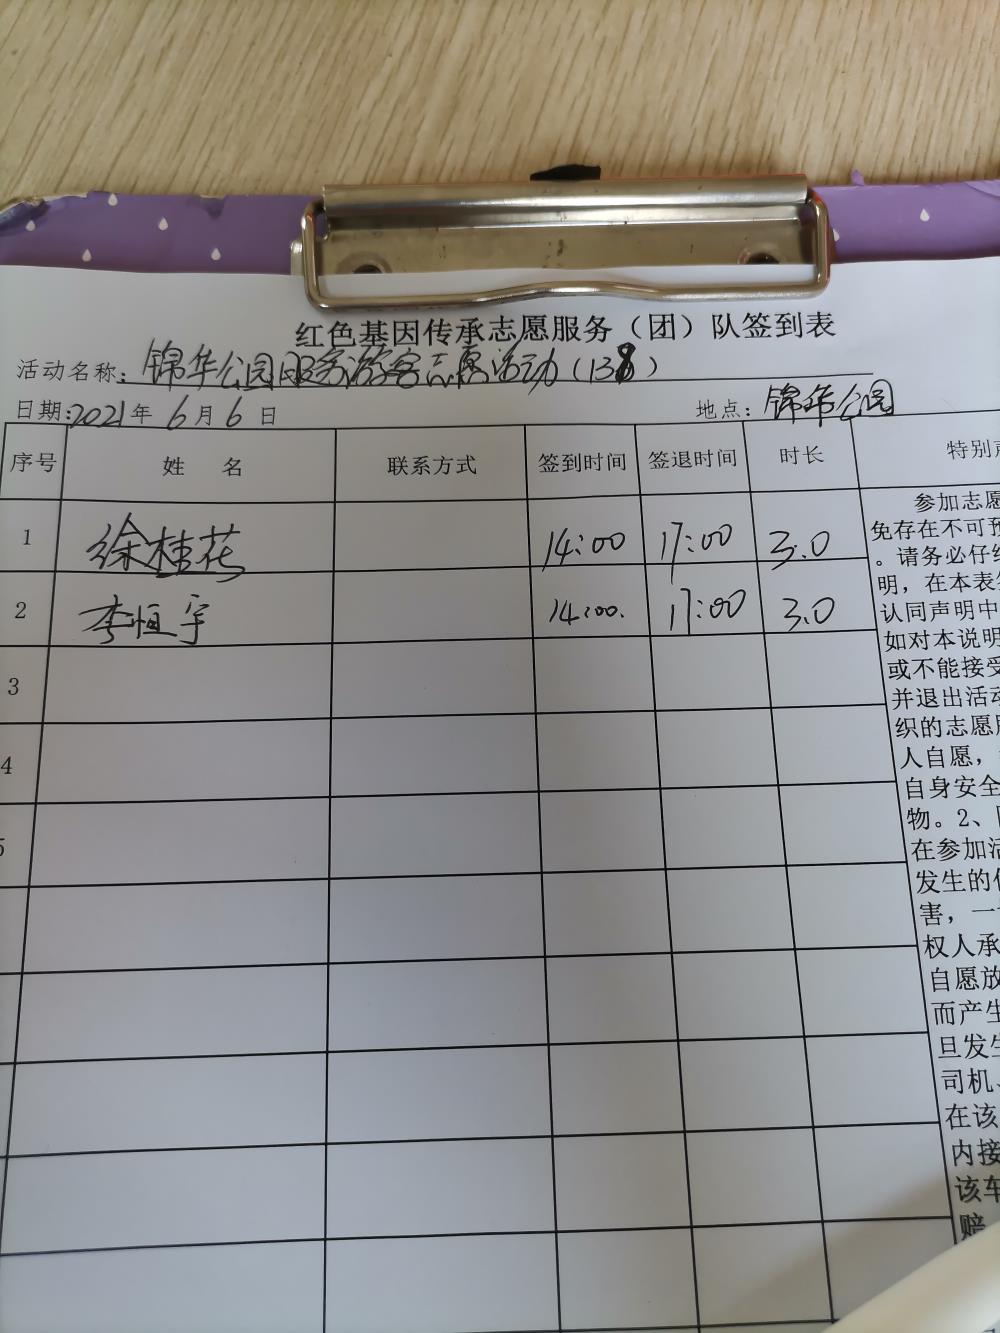 红色基因传承志愿服务（团）队签到表
活动名称：锦华公园服务游客志愿活动（138）
日期：2021年6月6日 地点：锦华公园
序号 姓名 联系方式 签到时间 签退时间 时长 特别声
1 徐桂花 14:00 17:00 3.0
2 李恒宇 14:00. 17:00 3.0
3
4
5
参加志愿
免存在不可预
。请务必仔细
明，在本表签
认同声明中
如对本说明
或不能接受
并退出活动
织的志愿服
人自愿，
自身安全
物。2、
在参加活
发生的
害，一
权人承
自愿放
而产生
旦发生
司机、
在该
内接
该车
赔